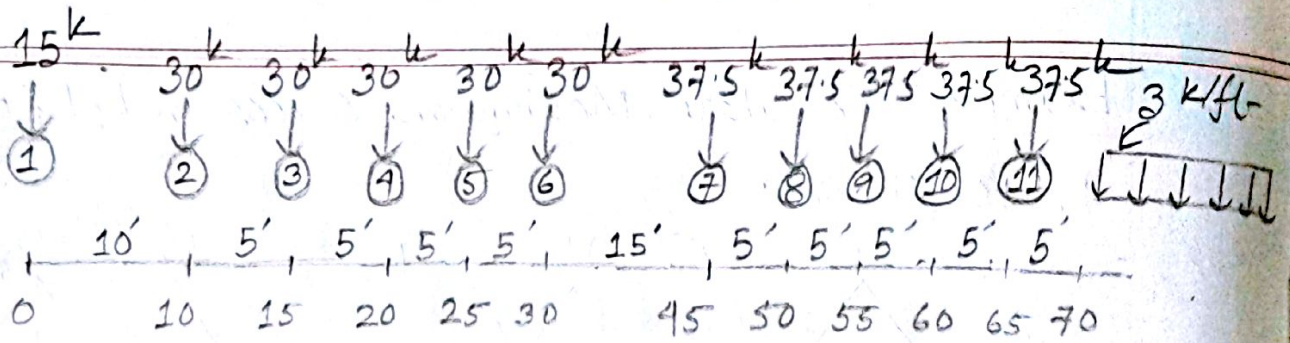 15k 30k 30k 30k 30k 30k 37.5k 37.5k 375k 37.5k 37.5k 3 k/ft
1 2 3 4 5 6 7 8 9 10 11
10' 5' 5' 5' 5' 15' 5' 5' 5' 5' 5'
0 10 15 20 25 30 45 50 55 60 65 70